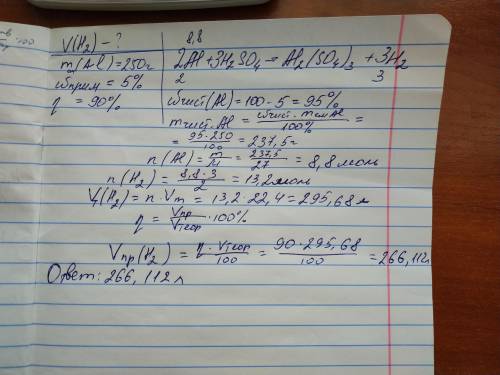 V(H₂) - ?
m(Al) = 250г
ωприм = 5%
η = 90%
8,8
2Al + 3H₂SO₄ = Al₂(SO₄)₃ + 3H₂
2 3
ωчист(Al) = 100 - 5 = 95%
mчист.Al = ωчист · mсмAl / 100% =
= 95 · 250 / 100 = 237,5г
n(Al) = m/M = 237,5/27 = 8,8 моль
n(H₂) = 8,8 · 3 / 2 = 13,2 моль
V(H₂) = n · Vm = 13,2 · 22,4 = 295,68 л
η = Vпр/Vтеор · 100%
Vпр(H₂) = η · Vтеор / 100 = 90 · 295,68 / 100 = 266,112л
Ответ: 266,112 л